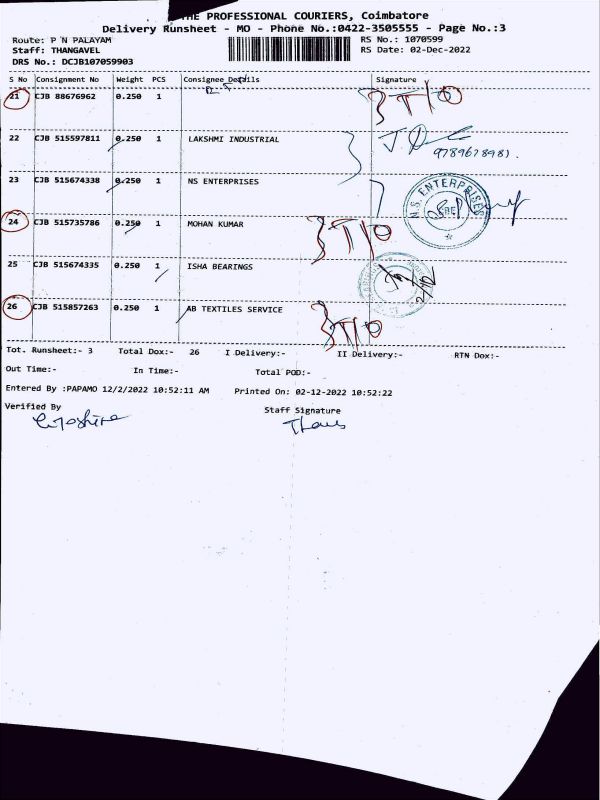 THE PROFESSIONAL COURIERS, Coimbatore
Delivery Runsheet - MO - Phone No.:0422-3505555 - Page No.:3
Route: P N PALAYAM RS No.: 1070599
Staff: THANGAVEL RS Date: 02-Dec-2022
DRS No.: DCJB107059903
S No Consignment No Weight PCS Consignee Details Signature
21 CJB 88676962 0.250 1
22 CJB 515597811 0.250 1 LAKSHMI INDUSTRIAL
9789678981.
23 CJB 515674338 0.250 1 NS ENTERPRISES
N.S. ENTERPRISES
24 CJB 515735786 0.250 1 MOHAN KUMAR
25 CJB 515674335 0.250 1 ISHA BEARINGS
26 CJB 515857263 0.250 1 AB TEXTILES SERVICE
Tot. Runsheet:- 3 Total Dox:- 26 I Delivery:- II Delivery:- RTN Dox:-
Out Time:- In Time:- Total POD:-
Entered By :PAPAMO 12/2/2022 10:52:11 AM Printed On: 02-12-2022 10:52:22
Verified By Staff Signature